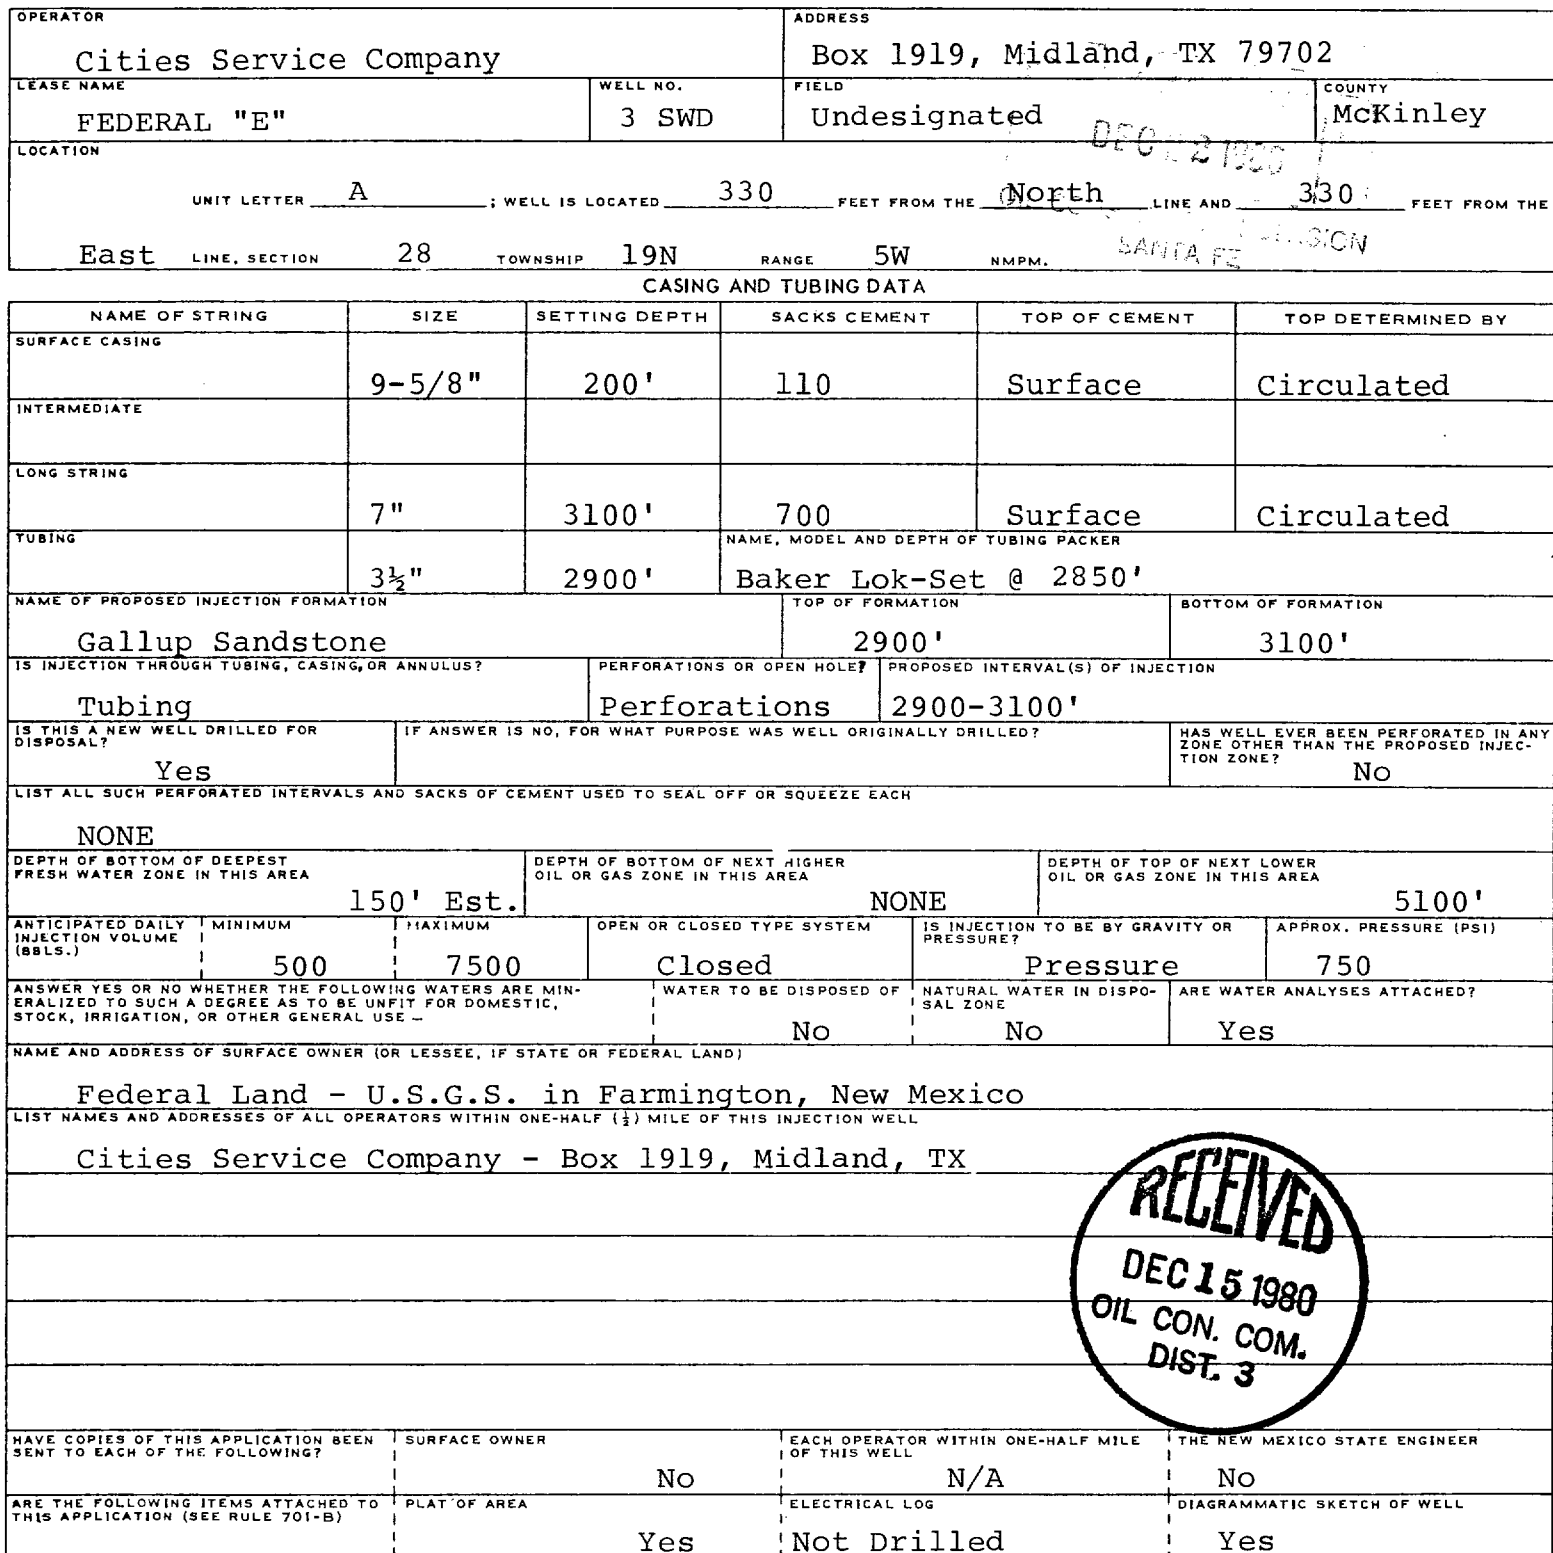 OPERATOR
Cities Service Company
ADDRESS
Box 1919, Midland, TX 79702
LEASE NAME
FEDERAL "E"
WELL NO.
3 SWD
FIELD
Undesignated
COUNTY
McKinley
LOCATION
UNIT LETTER A ; WELL IS LOCATED 330 FEET FROM THE North LINE AND 330 FEET FROM THE
East LINE, SECTION 28 TOWNSHIP 19N RANGE 5W NMPM.
SANTA FE
CASING AND TUBING DATA
NAME OF STRING SIZE SETTING DEPTH SACKS CEMENT TOP OF CEMENT TOP DETERMINED BY
SURFACE CASING
9-5/8" 200' 110 Surface Circulated
INTERMEDIATE
LONG STRING
7" 3100' 700 Surface Circulated
TUBING
3½" 2900'
NAME, MODEL AND DEPTH OF TUBING PACKER
Baker Lok-Set @ 2850'
NAME OF PROPOSED INJECTION FORMATION
Gallup Sandstone
TOP OF FORMATION
2900'
BOTTOM OF FORMATION
3100'
IS INJECTION THROUGH TUBING, CASING, OR ANNULUS?
Tubing
PERFORATIONS OR OPEN HOLE?
Perforations
PROPOSED INTERVAL(S) OF INJECTION
2900-3100'
IS THIS A NEW WELL DRILLED FOR
DISPOSAL?
Yes
IF ANSWER IS NO, FOR WHAT PURPOSE WAS WELL ORIGINALLY DRILLED?
HAS WELL EVER BEEN PERFORATED IN ANY
ZONE OTHER THAN THE PROPOSED INJEC-
TION ZONE?
No
LIST ALL SUCH PERFORATED INTERVALS AND SACKS OF CEMENT USED TO SEAL OFF OR SQUEEZE EACH
NONE
DEPTH OF BOTTOM OF DEEPEST
FRESH WATER ZONE IN THIS AREA
150' Est.
DEPTH OF BOTTOM OF NEXT HIGHER
OIL OR GAS ZONE IN THIS AREA
NONE
DEPTH OF TOP OF NEXT LOWER
OIL OR GAS ZONE IN THIS AREA
5100'
ANTICIPATED DAILY
INJECTION VOLUME
(BBLS.)
MINIMUM
500
MAXIMUM
7500
OPEN OR CLOSED TYPE SYSTEM
Closed
IS INJECTION TO BE BY GRAVITY OR
PRESSURE?
Pressure
APPROX. PRESSURE (PSI)
750
ANSWER YES OR NO WHETHER THE FOLLOWING WATERS ARE MIN-
ERALIZED TO SUCH A DEGREE AS TO BE UNFIT FOR DOMESTIC,
STOCK, IRRIGATION, OR OTHER GENERAL USE –
WATER TO BE DISPOSED OF
No
NATURAL WATER IN DISPO-
SAL ZONE
No
ARE WATER ANALYSES ATTACHED?
Yes
NAME AND ADDRESS OF SURFACE OWNER (OR LESSEE, IF STATE OR FEDERAL LAND)
Federal Land - U.S.G.S. in Farmington, New Mexico
LIST NAMES AND ADDRESSES OF ALL OPERATORS WITHIN ONE-HALF (½) MILE OF THIS INJECTION WELL
Cities Service Company - Box 1919, Midland, TX
RECEIVED
DEC 15 1980
OIL CON. COM.
DIST. 3
HAVE COPIES OF THIS APPLICATION BEEN
SENT TO EACH OF THE FOLLOWING?
SURFACE OWNER
No
EACH OPERATOR WITHIN ONE-HALF MILE
OF THIS WELL
N/A
THE NEW MEXICO STATE ENGINEER
No
ARE THE FOLLOWING ITEMS ATTACHED TO
THIS APPLICATION (SEE RULE 701-B)
PLAT OF AREA
Yes
ELECTRICAL LOG
Not Drilled
DIAGRAMMATIC SKETCH OF WELL
Yes